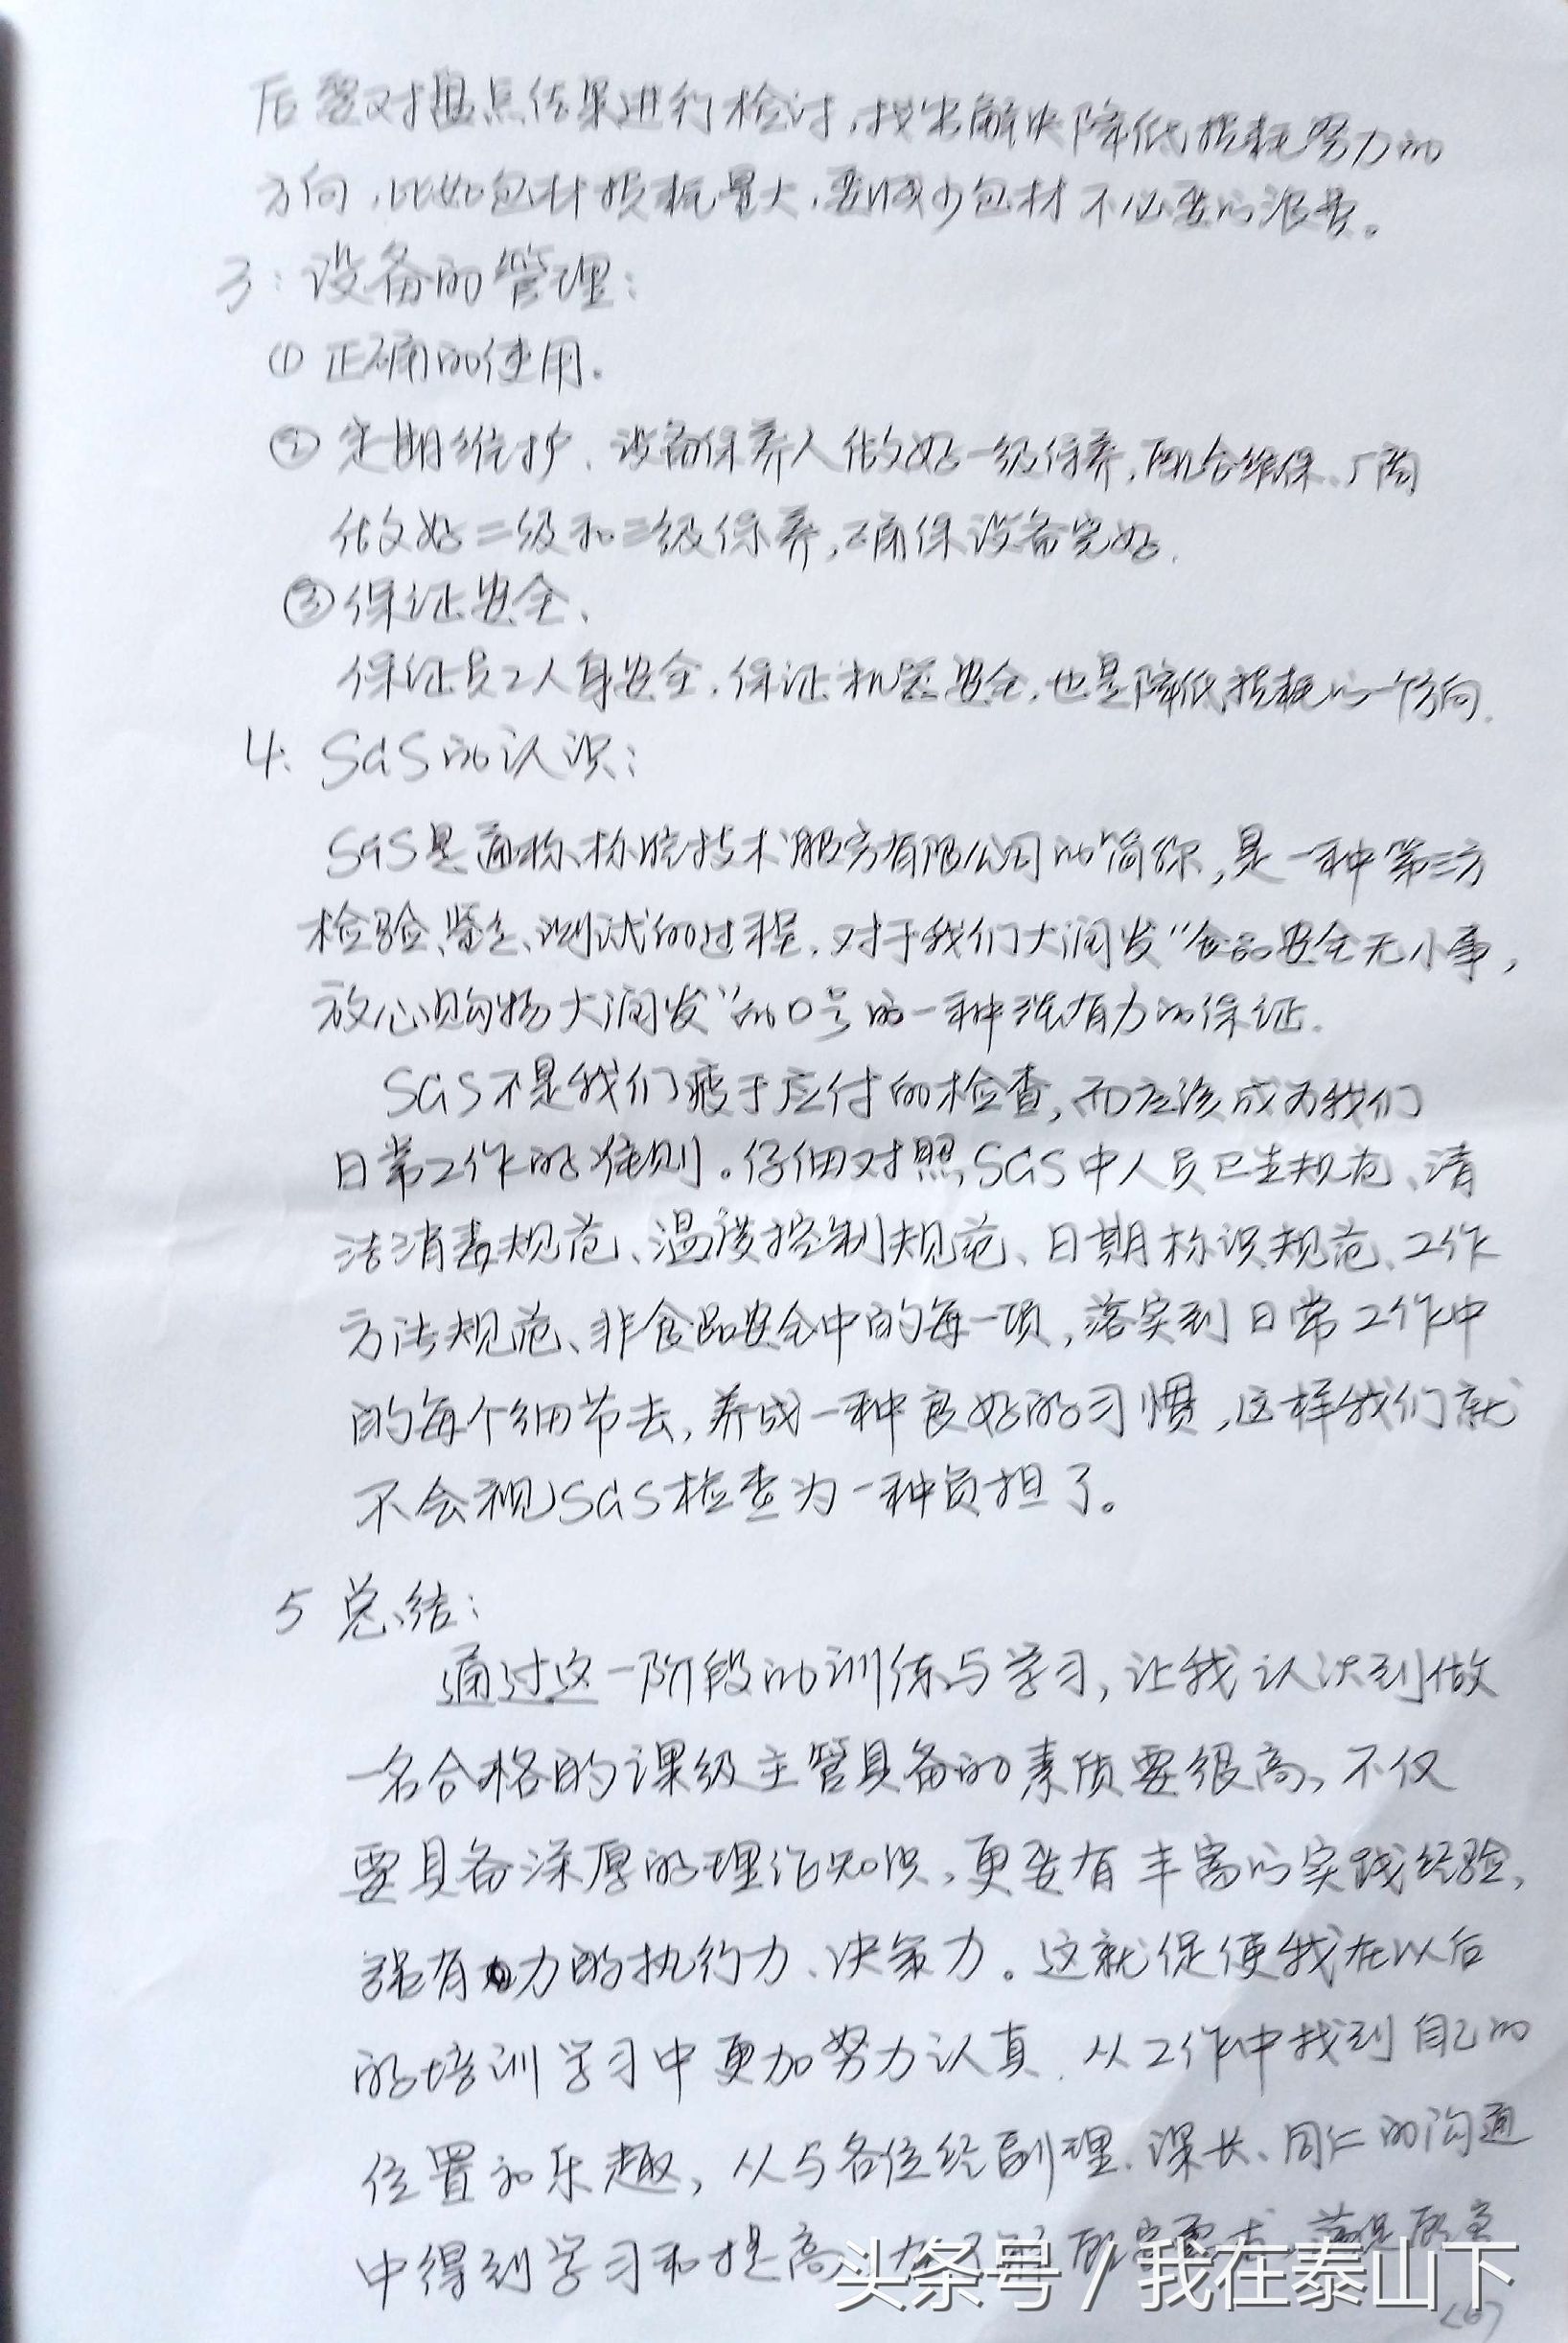 后要对盘点结果进行检讨，找出解决降低损耗努力的
方向，比如包材损耗量大，要减少包材不必要的浪费。
3：设备的管理：
① 正确的使用.
② 定期维护、设备保养人做好一级保养，配合维保、厂商
做好二级和三级保养，确保设备完好.
③ 保证安全、
保证员工人身安全，保证机器安全，也是降低损耗的一个方向.
4：SGS的认识：
SGS是通标标准技术服务有限公司的简称，是一种第三方
检验、鉴定、测试的过程，对于我们大润发“食品安全无小事，
放心购物大润发”的口号的一种强有力的保证.
SGS不是我们疲于应付的检查，而应该成为我们
日常工作的准则。仔细对照SGS中人员卫生规范、清
洁消毒规范、温度控制规范、日期标识规范、工作
方法规范、非食品安全中的每一项，落实到日常工作中
的每个细节去，养成一种良好的习惯，这样我们就
不会视SGS检查为一种负担了。
5 总结：
通过这一阶段的训练与学习，让我认识到做
一名合格的课级主管具备的素质要很高，不仅
要具备深厚的理论知识，更要有丰富的实践经验，
强有力的执行力、决策力。这就促使我在以后
的培训学习中更加努力认真、从工作中找到自己的
位置和乐趣，从与各位经副理、课长、同仁的沟通
中得到学习和提高
头条号 / 我在泰山下
<6>